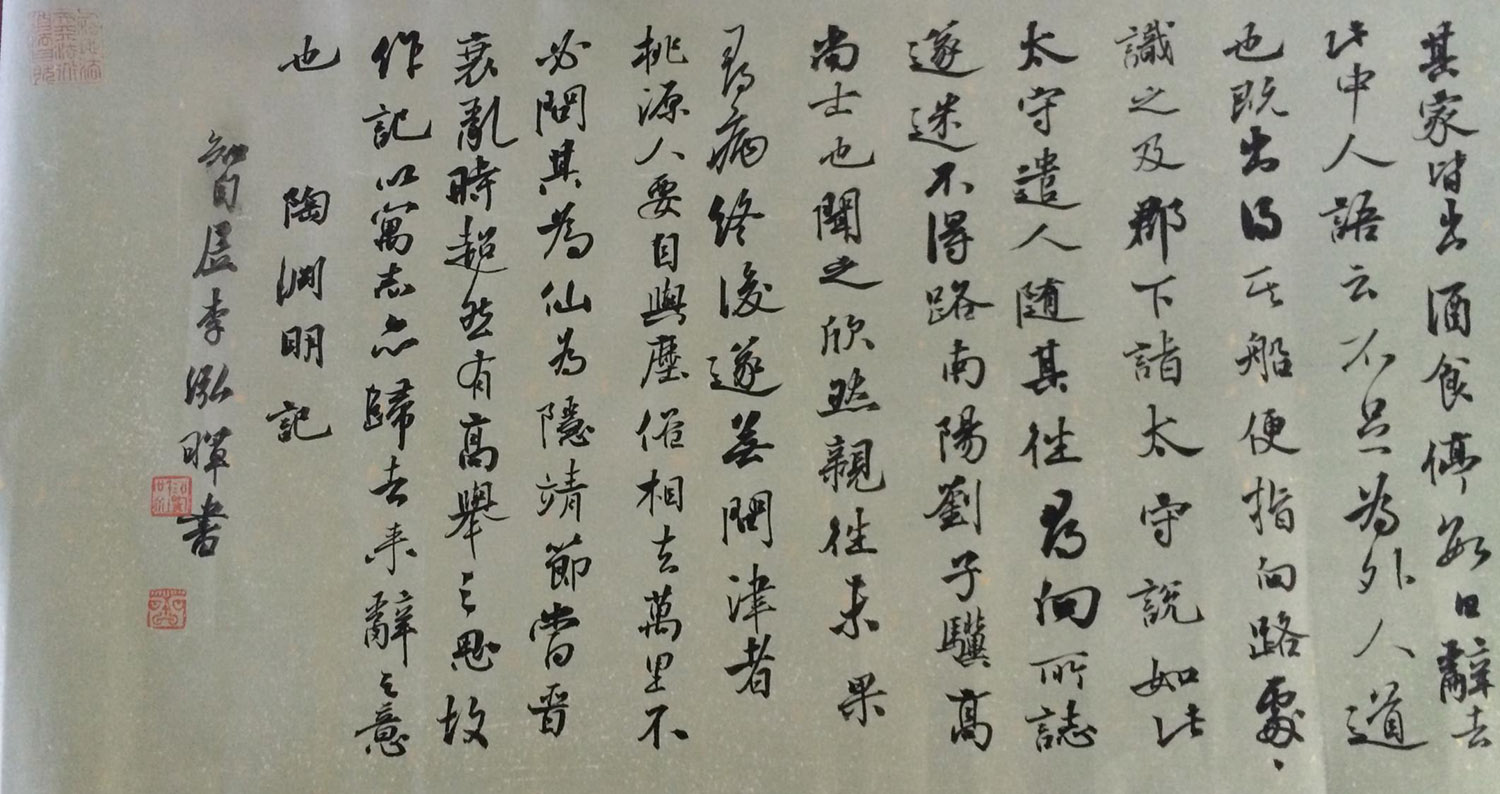 其家皆出酒食停數日辭去
此中人語云不足為外人道
也既出得其船便指向路處〻
識之及郡下詣太守說如此
太守遣人隨其往尋向所誌
遂迷不得路南陽劉子驥高
尚士也聞之欣然親往未果
尋病終後遂無問津者
桃源人要自與塵俗相去萬里不
必問其為仙為隱靖節當晉
衰亂時超然有高舉之思故
作記以寓志亦歸去來辭之意
也 陶淵明記
智居李泓暉書